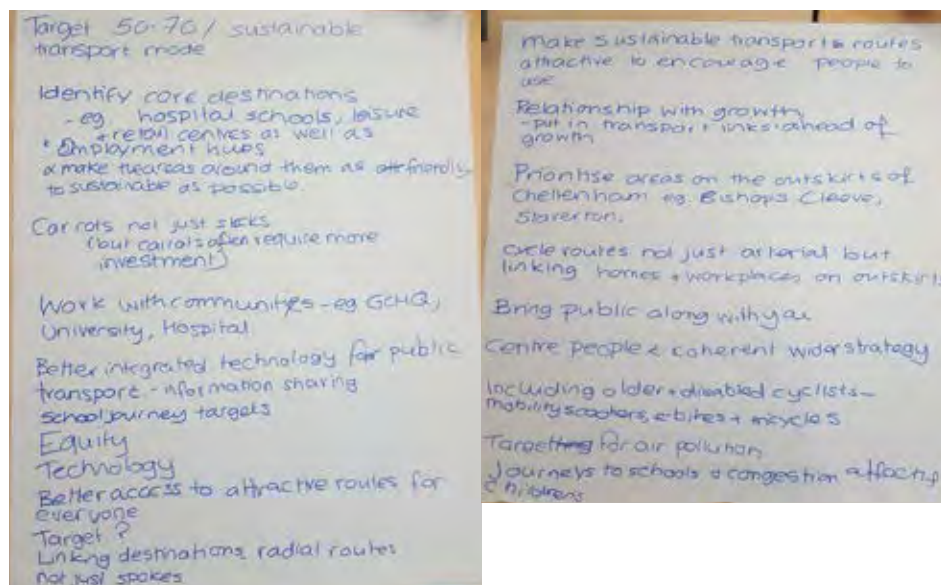 Target 50-70% sustainable
transport mode
Identify core destinations
- eg hospital schools, leisure
+ retail centres as well as
* Employment hubs
& make the areas around them as friendly
to sustainable as possible.
Carrots not just sticks
(but carrots often require more
investment)
Work with communities - eg GCHQ,
University, Hospital
Better integrated technology for public
transport - information sharing
school journey targets
Equity
Technology
Better access to attractive routes for
everyone
Target ?
Linking destinations, radial routes
not just spokes
Make sustainable transport routes
attractive to encourage people to
use
Relationship with growth,
- put in transport links ahead of
growth
Prioritise areas on the outskirts of
Cheltenham eg. Bishops Cleeve,
Staverton,
cycle routes not just arterial but
linking homes + workplaces on outskirts
Bring public along with you
Centre people & coherent wider strategy
Including older + disabled cyclists -
mobility scooters, e-bikes + tricycles
Target for air pollution
Journeys to schools & congestion affecting
childrens